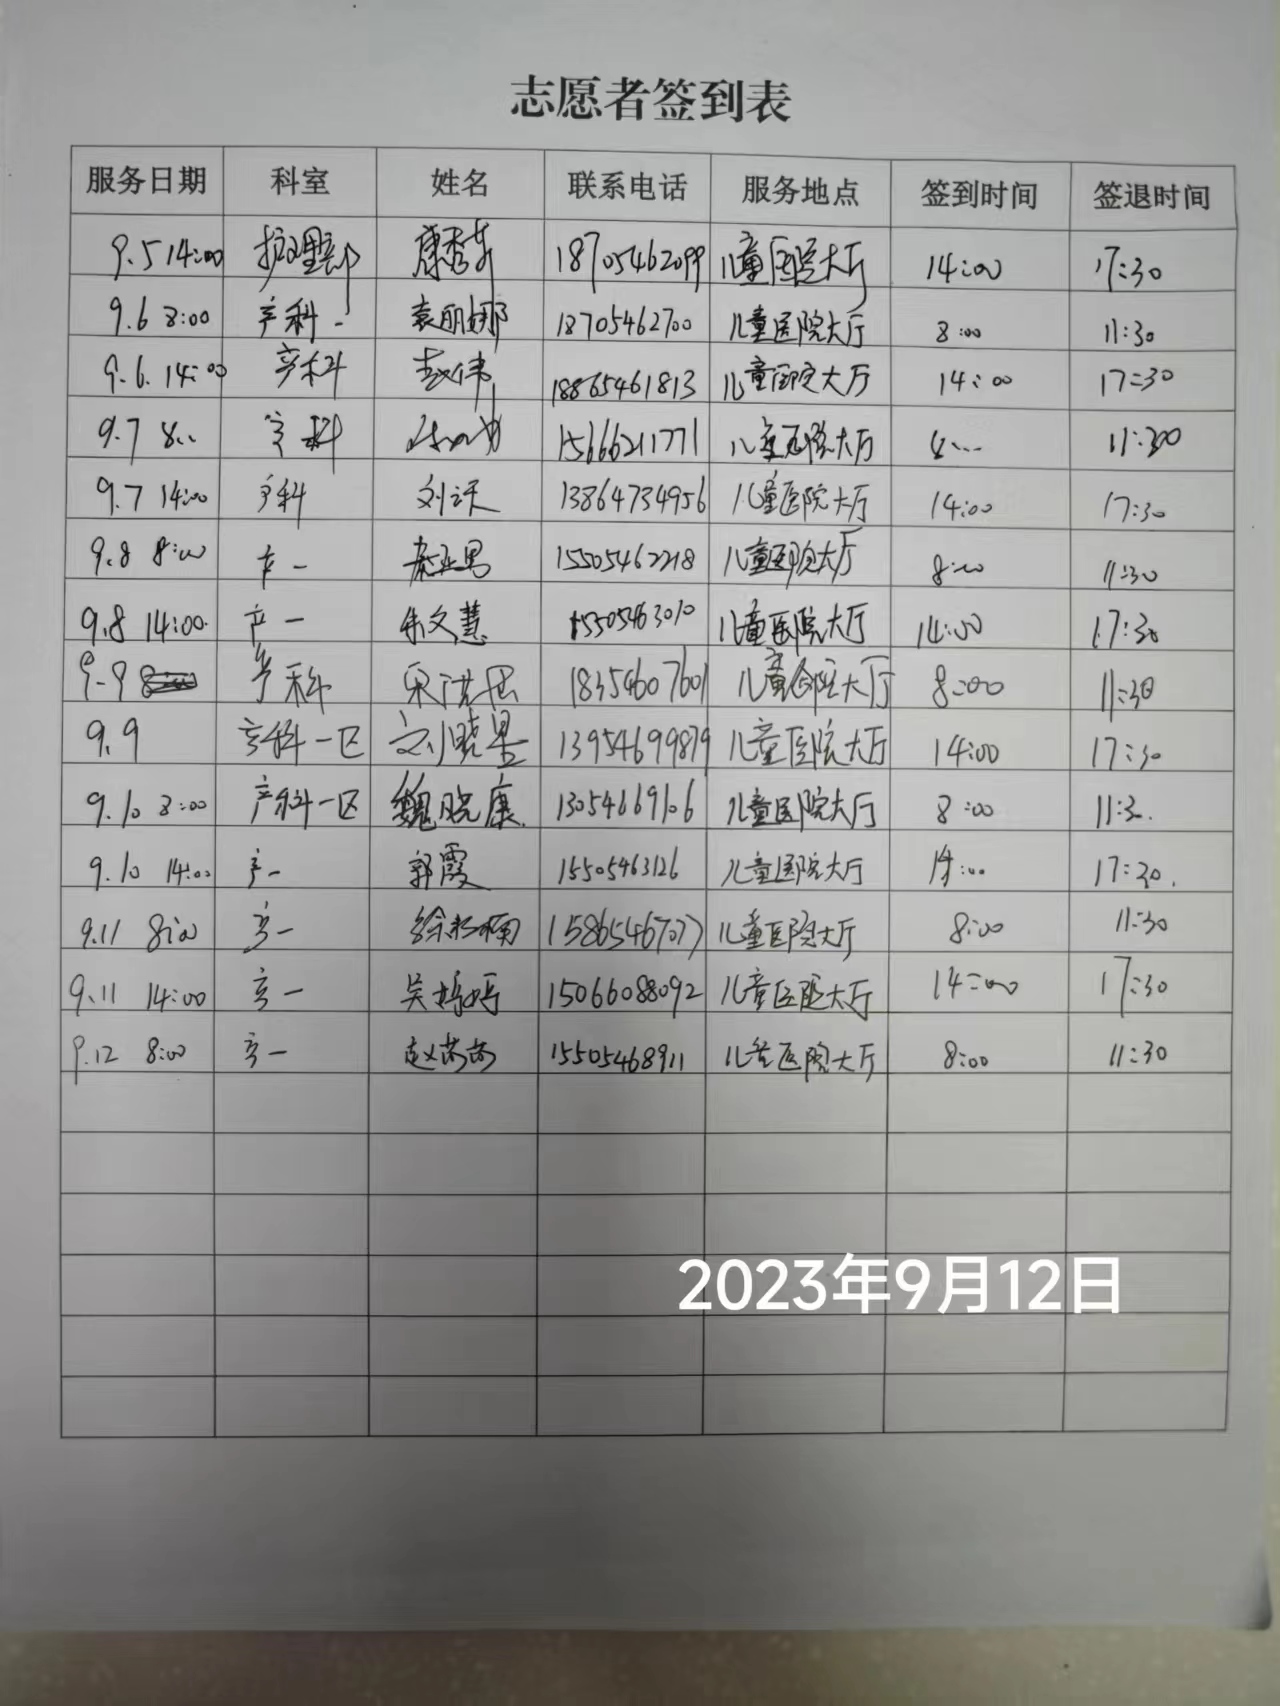 志愿者签到表
服务日期 科室 姓名 联系电话 服务地点 签到时间 签退时间
9.5 14:00 护理部 康秀芳 18705462099 儿童医院大厅 14:00 17:30
9.6 8:00 产科一 袁丽娜 18705462700 儿童医院大厅 8:00 11:30
9.6. 14:00 产科 赵伟 18865461813 儿童医院大厅 14:00 17:30
9.7 8:00 产科 15666211771 儿童医院大厅 8:00 11:300
9.7 14:00 产科 刘 13864734956 儿童医院大厅 14:00 17:30
9.8 8:00 产一 亚男 15505462218 儿童医院大厅 8:00 11:30
9.8 14:00 产一 朱文慧 15505463010 儿童医院大厅 14:00 17:30
9-9 产科 宋 18354607601 儿童医院大厅 8:00 11:30
9.9 产科一区 刘晓昱 13954699879 儿童医院大厅 14:00 17:30
9.10 8:00 产科一区 魏晓康 13054669106 儿童医院大厅 8:00 11:30
9.10 14:00 产一 郭霞 15505463126 儿童医院大厅 14:00 17:30
9.11 8:00 产一 徐 楠 15865467077 儿童医院大厅 8:00 11:30
9.11 14:00 产一 吴婷婷 15066088092 儿童医院大厅 14:00 17:30
9.12 8:00 产一 赵芮芮 15505468911 儿童医院大厅 8:00 11:30
2023年9月12日